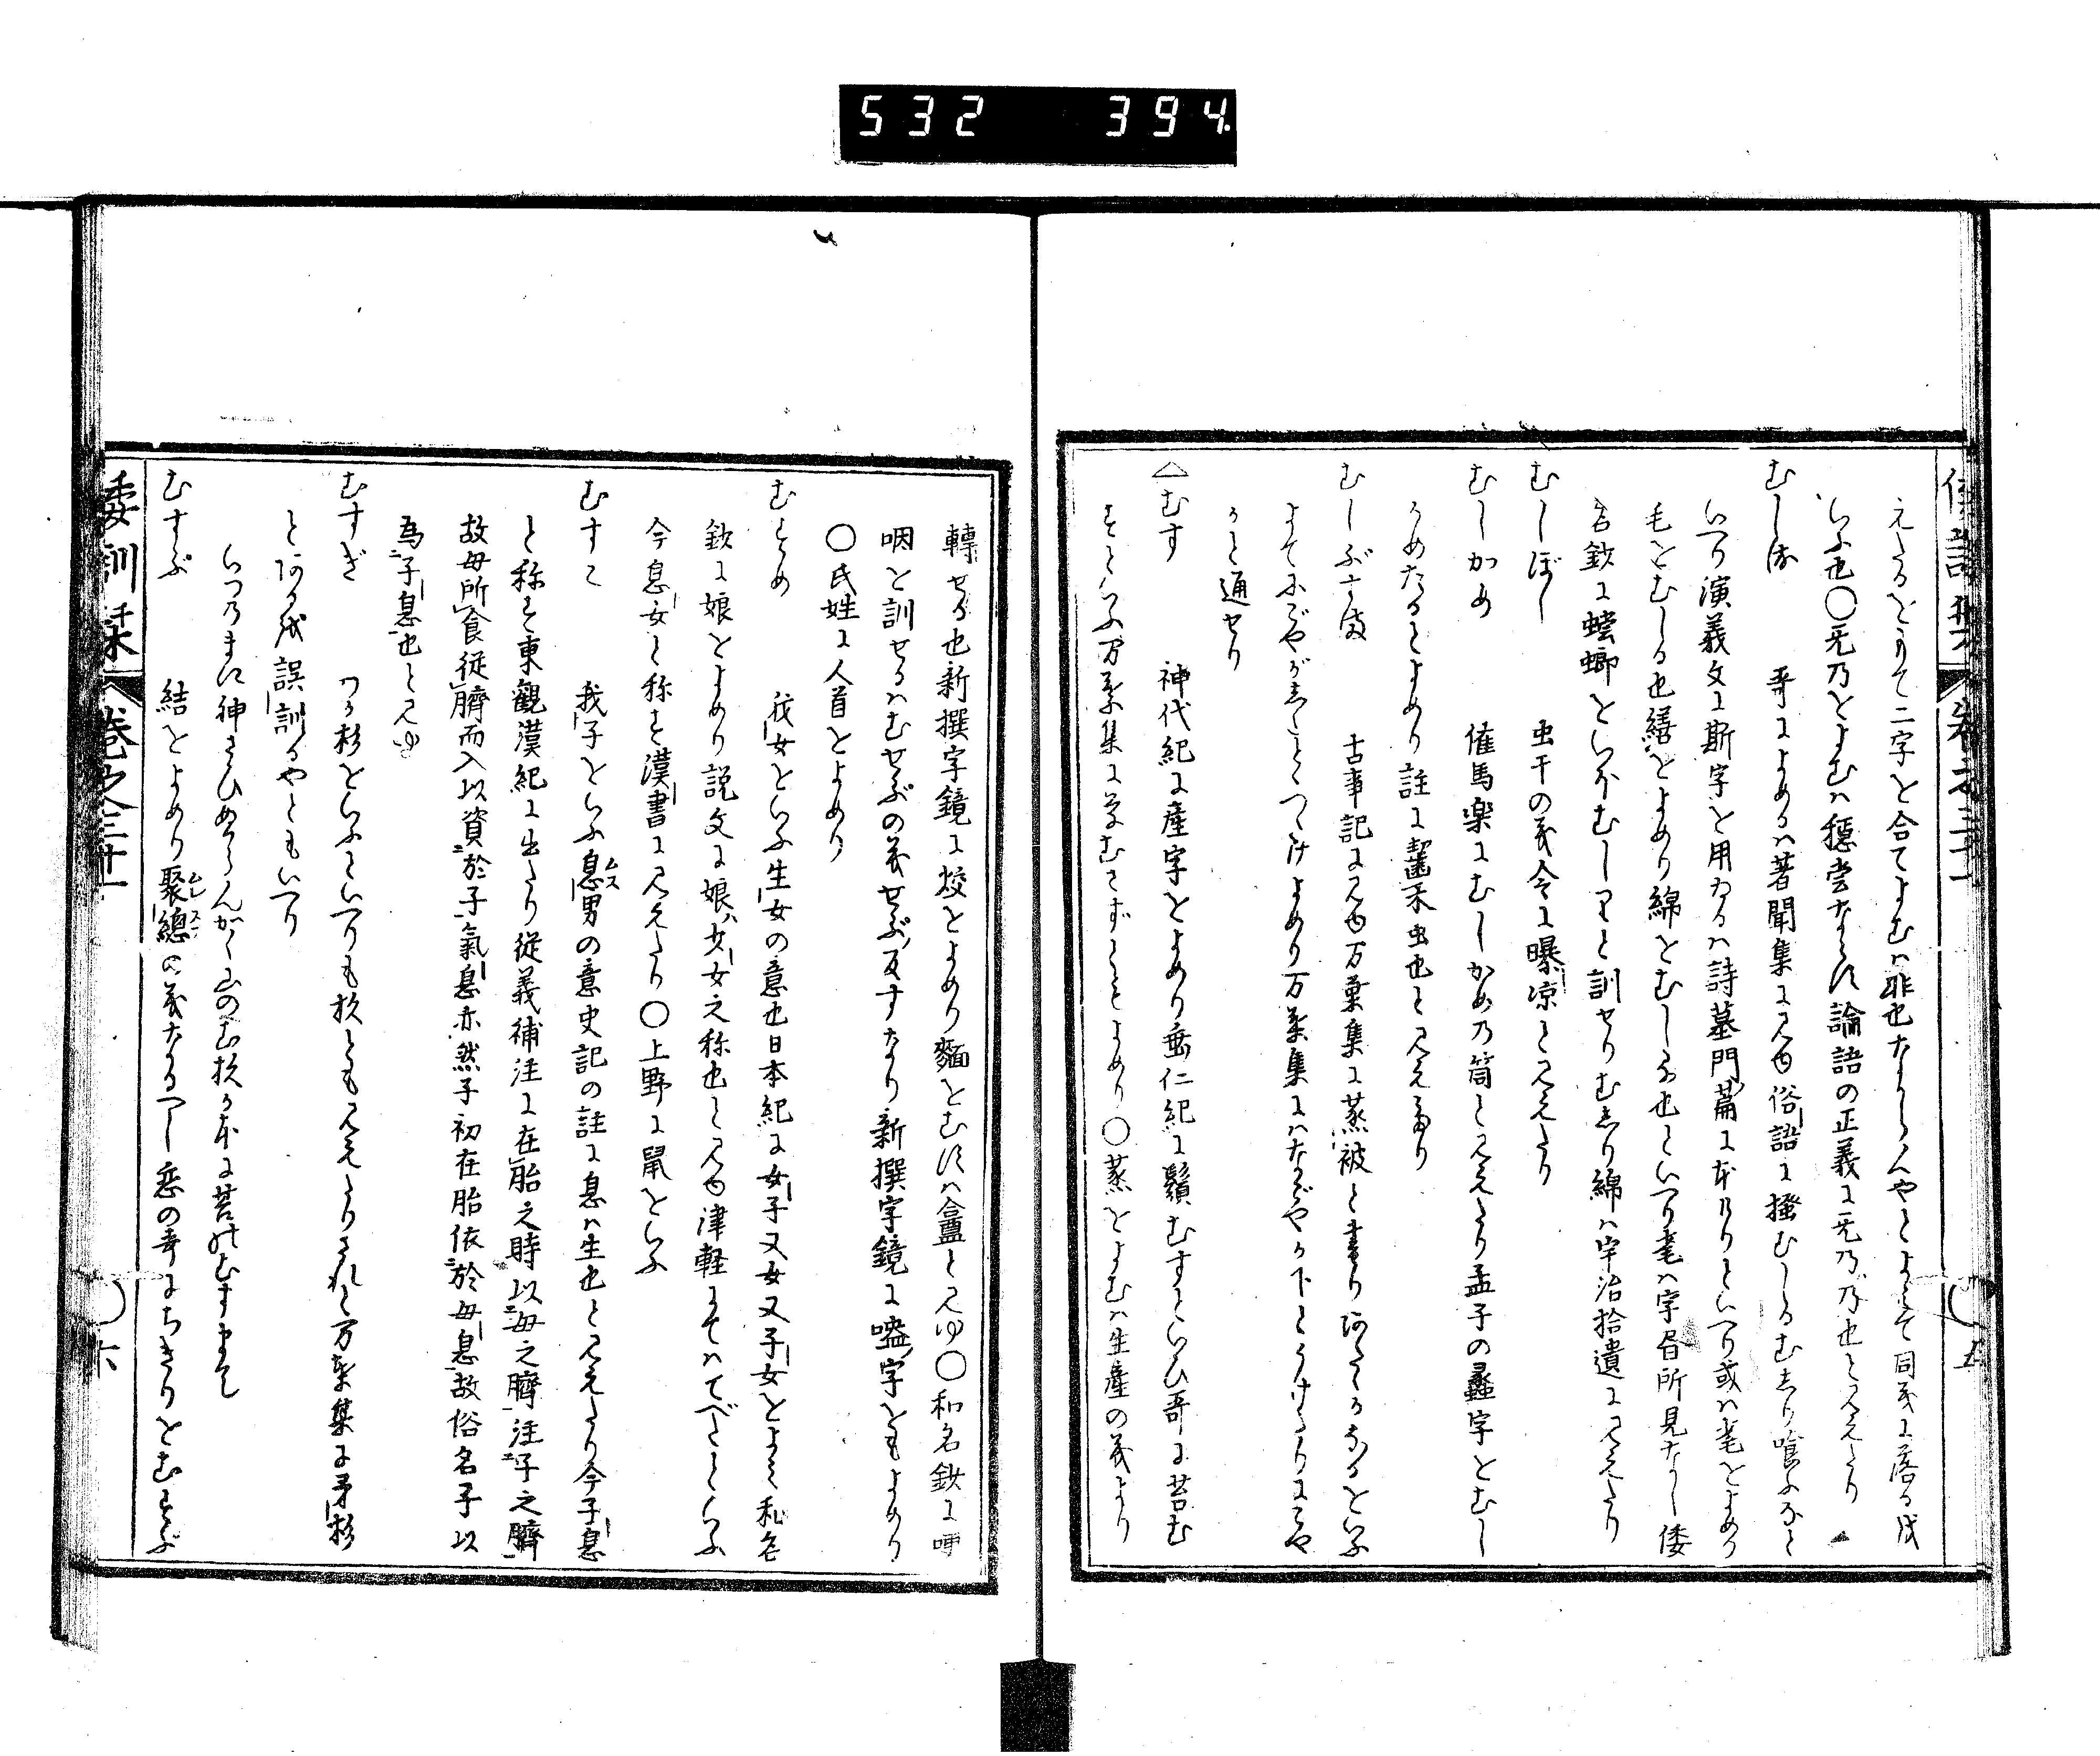 532 394
えたるをもて二字を合てよむは非也ならくやとよみて同義に落る成
いふ也〇无乃をよむは穏当ならす論語の正義に无乃乃也と見えたり
むしる 哥によめるは著聞集に見ゆ俗語に掻むしるむしり喰ふなと
いへり演義文に斯字を用ゐるは詩墓門篇に本けりといへり或は毟をよめり
毛をむしる也繕をよめり綿をむしる也といへり毟は字書所見なし倭
名鈔に蟷螂をいほむしりと訓せりむしり綿は宇治拾遺に見えたり
むしぼし 虫干の義今に曝凉と見えたり
むしかめ 催馬楽にむしかめの筒と見えたり孟子の蠡字をむし
かめたるとよめり註に齧禾虫也と見えたり
むしぶすま 古事記に見ゆ万葉集に蒸被と書りあたゝかなるをいふ
よてにこやがしたとつゝけよめり万葉集にはなごやが下とうけたりにこや
かと通せり
△むす 神代紀に産字をよめり垂仁紀に鬚むすといひ哥に苔む
すといふ万葉集に草むさずともよめり〇蒸をよむは生産の義より
轉せる也新撰字鏡に烄をよめり麺をむすは盦と見ゆ〇和名鈔に哽
咽を訓せるはむせぶの義せぶ反すなり新撰字鏡に嗌字ともよめり
〇氏姓に人首をよめり
むすめ 我女をいふ生女の意也日本紀に女子又女又子女をよみ和名
鈔に娘をよめり説文に娘ハ少女之称也と見ゆ津軽にてはてべこといふ
今息女と称す漢書に見えたり〇上野に鼠をいふ
むすこ 我子をいふ息男の意史記の註に息は生也と見えたり今子息
と称す東觀漢紀に出たり從義補注に在胎之時以母之臍注子之臍
故母所食從臍而入以資於子氣息亦然子初在胎依於母息故俗名子以
為子息也と見ゆ
むすぎ わか杉をいふといへりも杉とも見えたりされと万葉集に矛杉
とある成誤訓るやともいへり
いつのまに神さひめらんかく山のむ杉か本に苔のむすまて
むすぶ 結をよめり聚總の義なるへし恋の哥にちきりをむすぶ
倭訓栞 巻之三十一 五
倭訓栞 巻之三十一 六